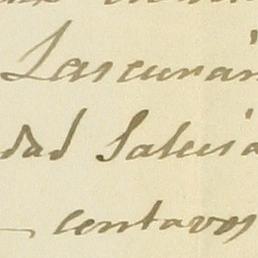 Lascurán
dad Salesia
centavos